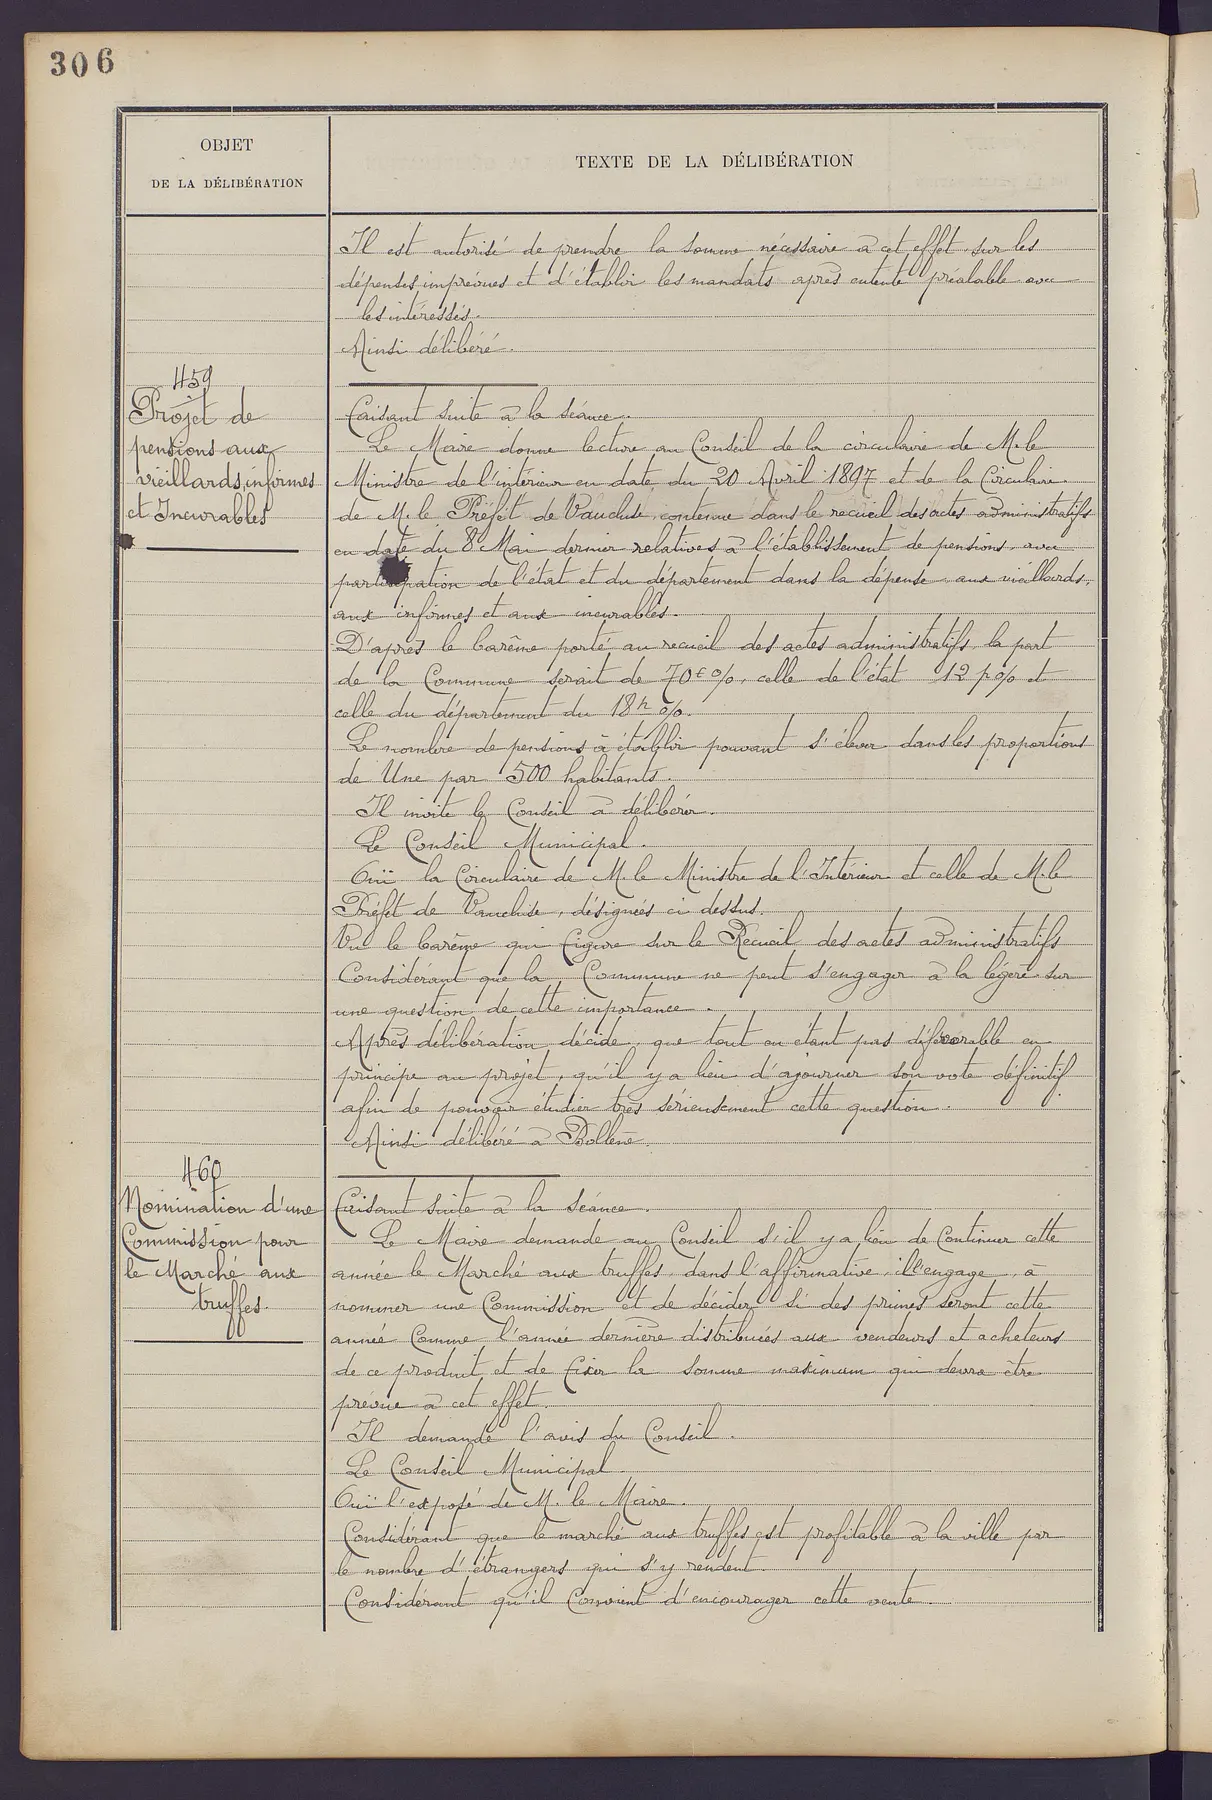 306
OBJET
DE LA DÉLIBÉRATION
TEXTE DE LA DÉLIBÉRATION
Il est autorisé de prendre la somme nécessaire à cet effet, sur les
dépenses imprévues et d'établir les mandats après entente préalable avec
les intéressés.
Ainsi délibéré.
459
Projet de
pensions aux
vieillards, infirmes
et Incurables
Faisant suite à la séance.
Le Maire donne lecture au Conseil de la circulaire de M. le
Ministre de l'intérieur en date du 20 Avril 1897 et de la Circulaire
de M. le Préfet de Vaucluse, contenue dans le recueil des actes administratifs
en date du 8 Mai dernier relatives à l'établissement de pensions, avec
participation de l'état et du département dans la dépense aux vieillards,
aux infirmes et aux incurables.
D'après le barême porté au recueil des actes administratifs, la part
de la Commune serait de 70f %, celle de l'état 12 p % et
celle du département du 18 p %.
Le nombre de pensions à établir pouvant s'élever dans les proportions
de Une par 500 habitants.
Il invite le Conseil à délibérer.
Le Conseil Municipal.
Ouï la Circulaire de M. le Ministre de l'Intérieur et celle de M. le
Préfet de Vaucluse, désignées ci dessus.
Vu le barême qui figure sur le Recueil des actes administratifs
Considérant que la Commune ne peut s'engager à la légère sur
une question de cette importance.
Après délibération décide, que tout en étant pas défavorable en
principe au projet, qu'il y a lieu d'ajourner son vote définitif
afin de pouvoir étudier très sérieusement cette question.
Ainsi délibéré à Bollène.
460
Nomination d'une
Commission pour
le Marché aux
truffes.
Faisant suite à la séance.
Le Maire demande au Conseil s'il y a lieu de Continuer cette
année le Marché aux truffes, dans l'affirmative, il l'engage, à
nommer une Commission et de décider si des primes seront cette
année Comme l'année dernière distribuées aux vendeurs et acheteurs
de ce produit et de fixer la somme maximum qui devra être
prévue à cet effet.
Il demande l'avis du Conseil.
Le Conseil Municipal
Ouï l'exposé de M. le Maire.
Considérant que le marché aux truffes est profitable à la ville par
le nombre d'étrangers qui s'y rendent.
Considérant qu'il Convient d'encourager cette vente.